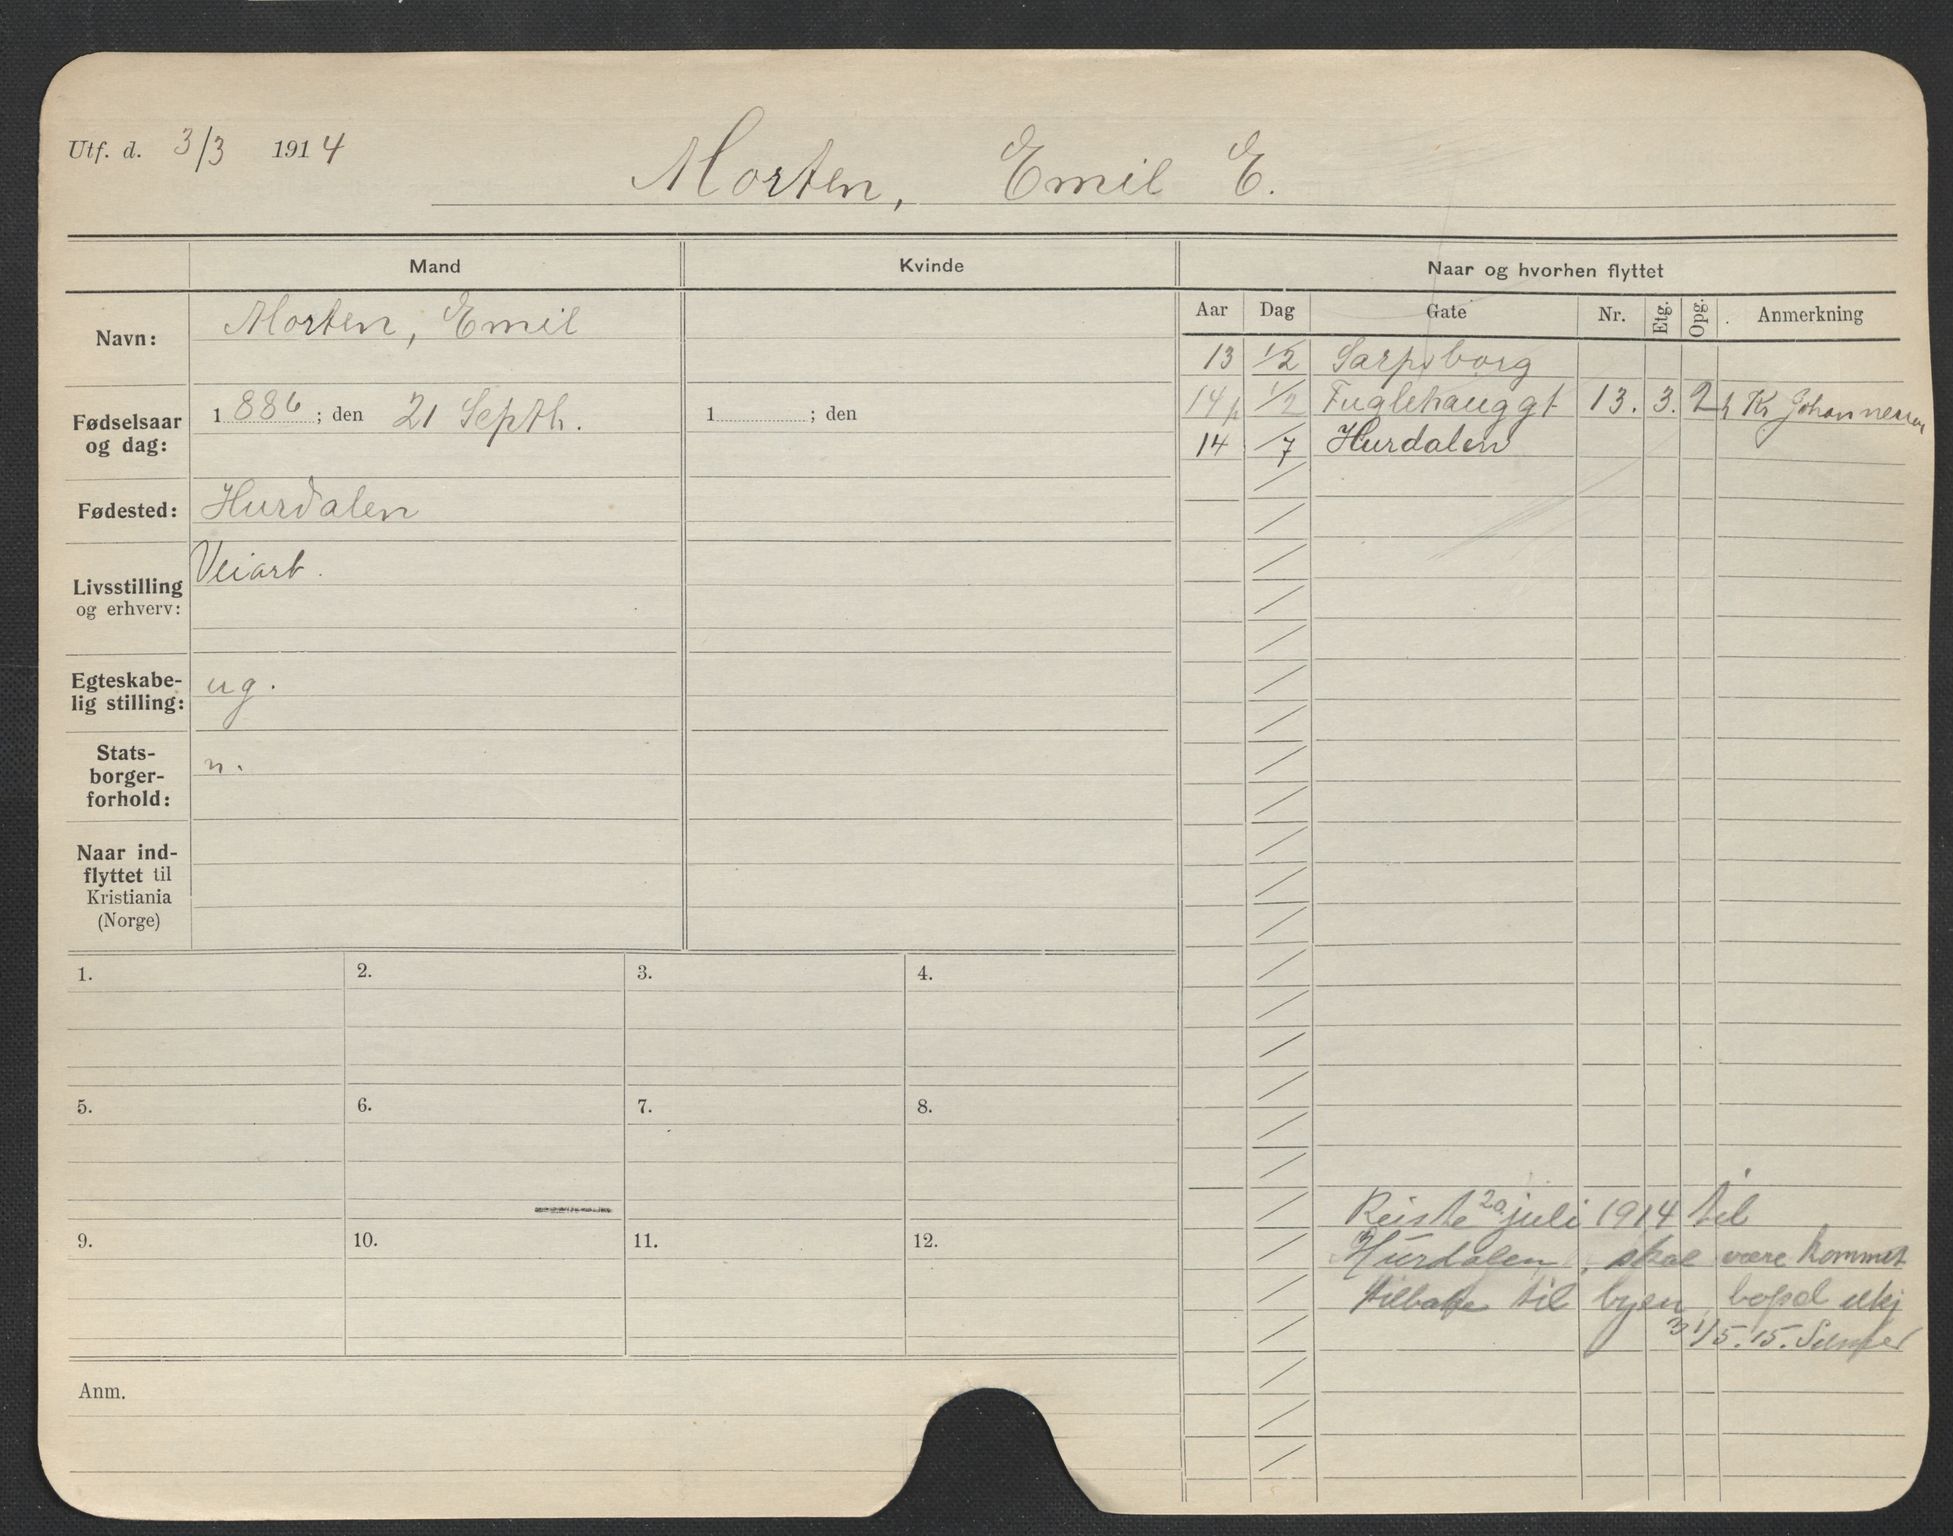 Utf. d. 3/3 1914
Morten, Emil E.
Mand
Kvinde
Naar og hvorhen flyttet
Navn: Morten, Emil
Fødselsaar og dag: 1886; den 21 Septb. 1 ; den
Fødested: Hurdalen
Livsstilling og erhverv: Veiarb.
Egteskabe-
lig stilling: ug.
Stats-
borger-
forhold: n.
Naar ind-
flyttet til
Kristiania
(Norge)
Aar Dag Gate Nr. Etg. Opg. Anmerkning
13 1/2 Sarpsborg
14 1/2 Fuglehauggt 13. 3. 2 h Kr Johannessen
14 /7 Hurdalen
1. 2. 3. 4.
5. 6. 7. 8.
9. 10. 11. 12.
Reiste 20 juli 1914 til
Hurdalen, skal være kommet
tilbake til byen, bopel ukj
31/5.15.
Anm.